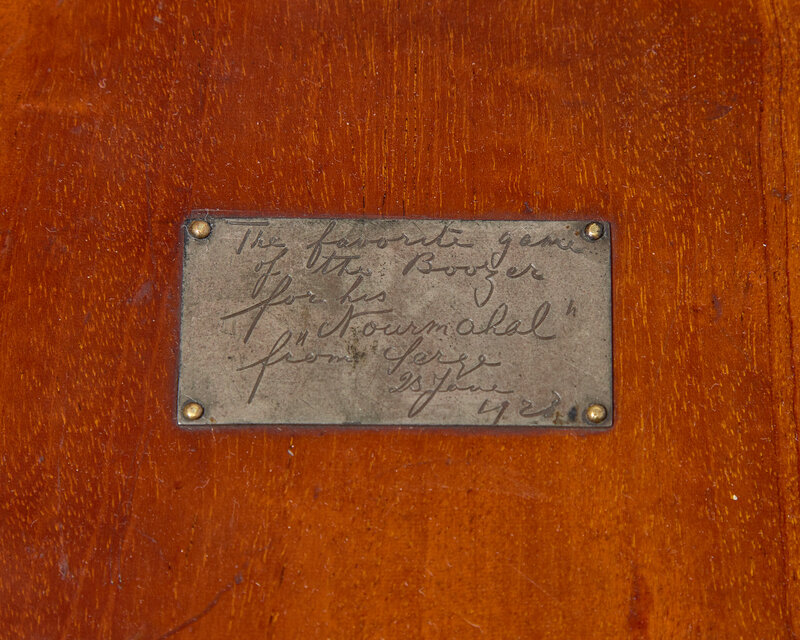 The favorite game
of the Boozer
for his
"Nourmahal"
from Sarge
June
1928